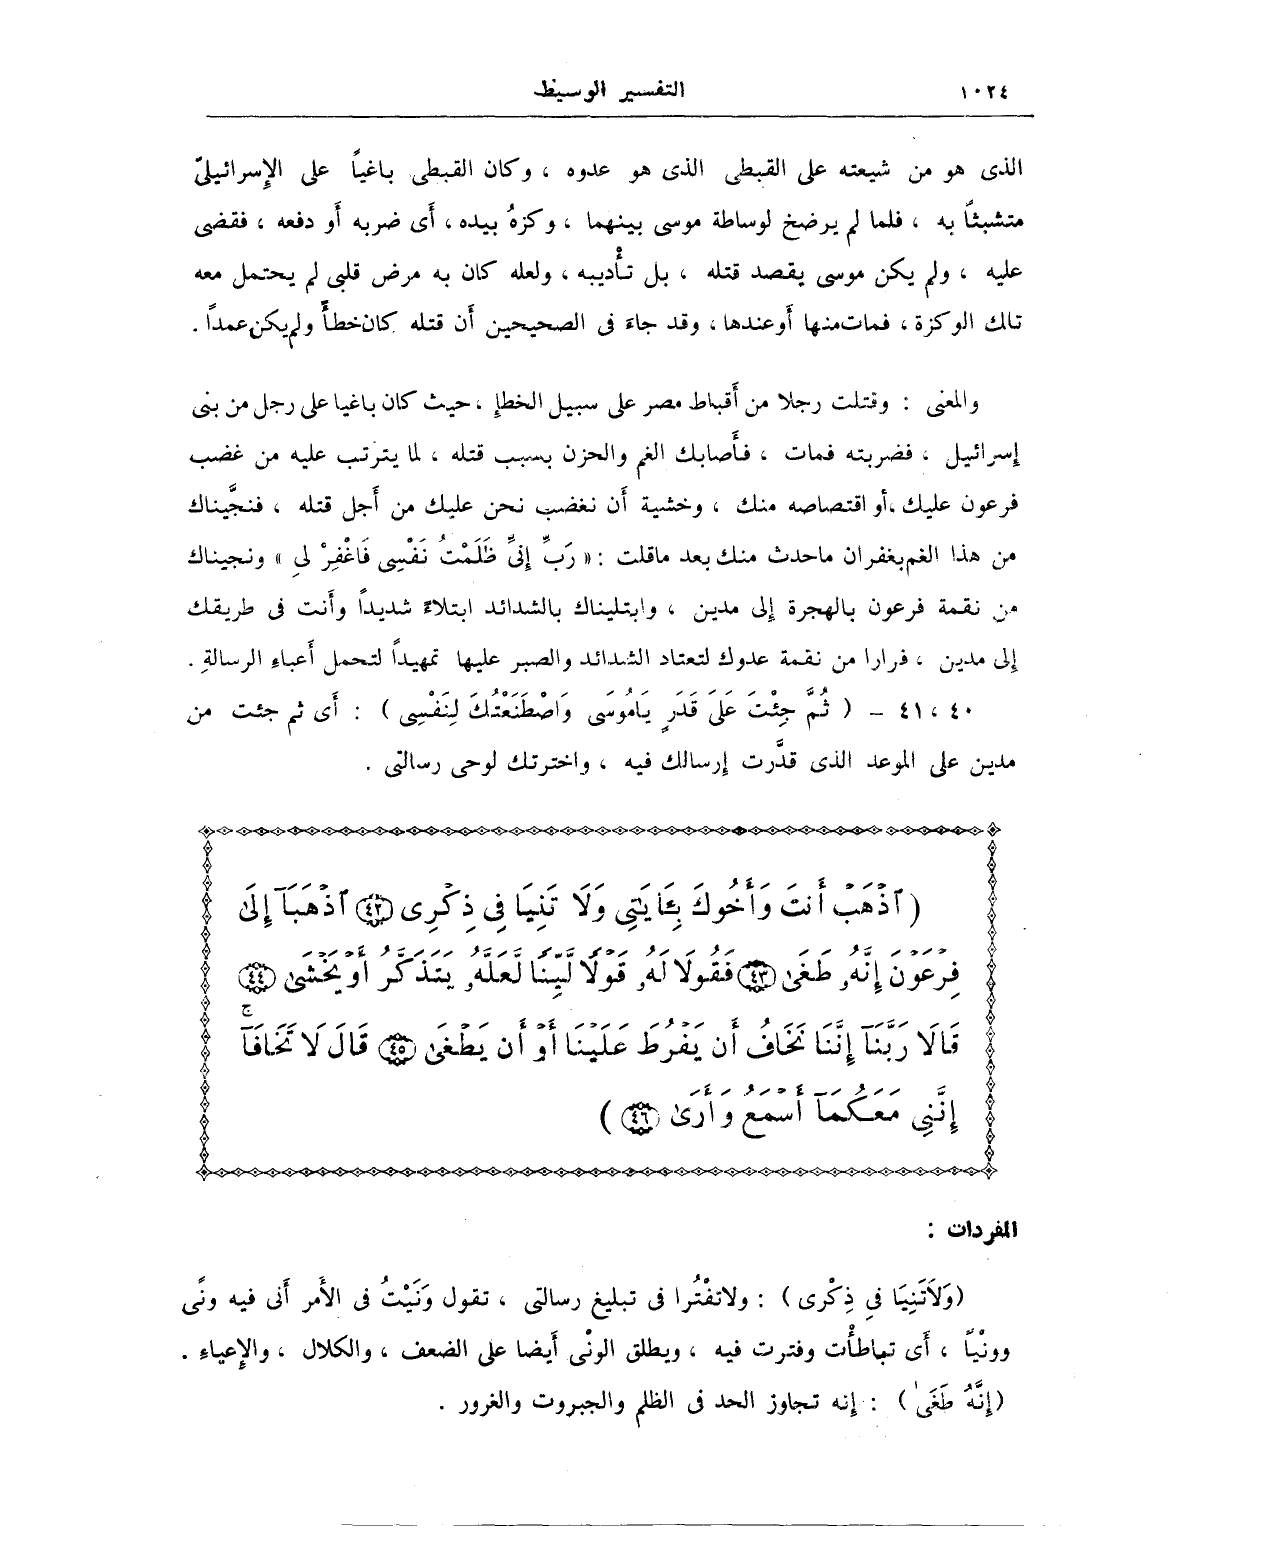 ١٠٢٤ التفسير الوسيط
الذى هو من شيعته على القبطى الذى هو عدوه ، وكان القبطى باغياً على الإسرائيلىّ
متشبثاً به ، فلما لم يرضخ لوساطة موسى بينهما ، وكزهُ بيده ، أى ضربه أو دفعه ، فقضى
عليه ، ولم يكن موسى يقصد قتله ، بل تأْديبه ، ولعله كان به مرض قلبى لم يحتمل معه
تلك الوكزة ، فمات منها أو عندها ، وقد جاءَ فى الصحيحين أن قتله كان خطأً ولم يكن عمداً .
والمعنى : وقتلت رجلا من أقباط مصر على سبيل الخطإِ ، حيث كان باغيا على رجل من بنى
إسرائيل ، فضربته فمات ، فأَصابك الغم والحزن بسبب قتله ، لما يترتب عليه من غضب
فرعون عليك ، أو اقتصاصه منك ، وخشية أن نغضب نحن عليك من أَجل قتله ، فنجَّيناك
من هذا الغم بغفران ماحدث منك بعد ماقلت : « رَبِّ إِنِّى ظَلَمْتُ نَفْسِى فَاغْفِرْ لِى » ونجيناك
من نقمة فرعون بالهجرة إلى مدين ، وابتليناك بالشدائد ابتلاءً شديداً وأَنت فى طريقك
إلى مدين ، فرارا من نقمة عدوك لتعتاد الشدائد والصبر عليها تمهيداً لتحمل أَعباءِ الرسالةِ .
٤٠ ، ٤١ – ( ثُمَّ جِئْتَ عَلَى قَدَرٍ يَامُوسَى وَاصْطَنَعْتُكَ لِنَفْسِى ) : أَى ثم جئت من
مدين على الموعد الذى قدَّرت إرسالك فيه ، واخترتك لوحى رسالتى .
( ٱذْهَبْ أَنتَ وَأَخُوكَ بِـَٔايَٰتِى وَلَا تَنِيَا فِى ذِكْرِى ٤٢ ٱذْهَبَآ إِلَىٰ
فِرْعَوْنَ إِنَّهُۥ طَغَىٰ ٤٣ فَقُولَا لَهُۥ قَوْلًا لَّيِّنًا لَّعَلَّهُۥ يَتَذَكَّرُ أَوْ يَخْشَىٰ ٤٤
قَالَا رَبَّنَآ إِنَّنَا نَخَافُ أَن يَفْرُطَ عَلَيْنَآ أَوْ أَن يَطْغَىٰ ٤٥ قَالَ لَا تَخَافَآ ۖ
إِنَّنِى مَعَكُمَآ أَسْمَعُ وَأَرَىٰ ٤٦ )
المفردات :
(وَلَاتَنِيَا فِى ذِكْرِى ) : ولاتفْتُرا فى تبليغ رسالتى ، تقول وَنَيْتُ فى الأَمر أَنى فيه ونًى
وونْياً ، أَى تباطأْت وفترت فيه ، ويطلق الونْى أَيضا على الضعف ، والكلال ، والإِعياءِ .
(إِنَّهُ طَغَىٰ ) : إنه تجاوز الحد فى الظلم والجبروت والغرور .